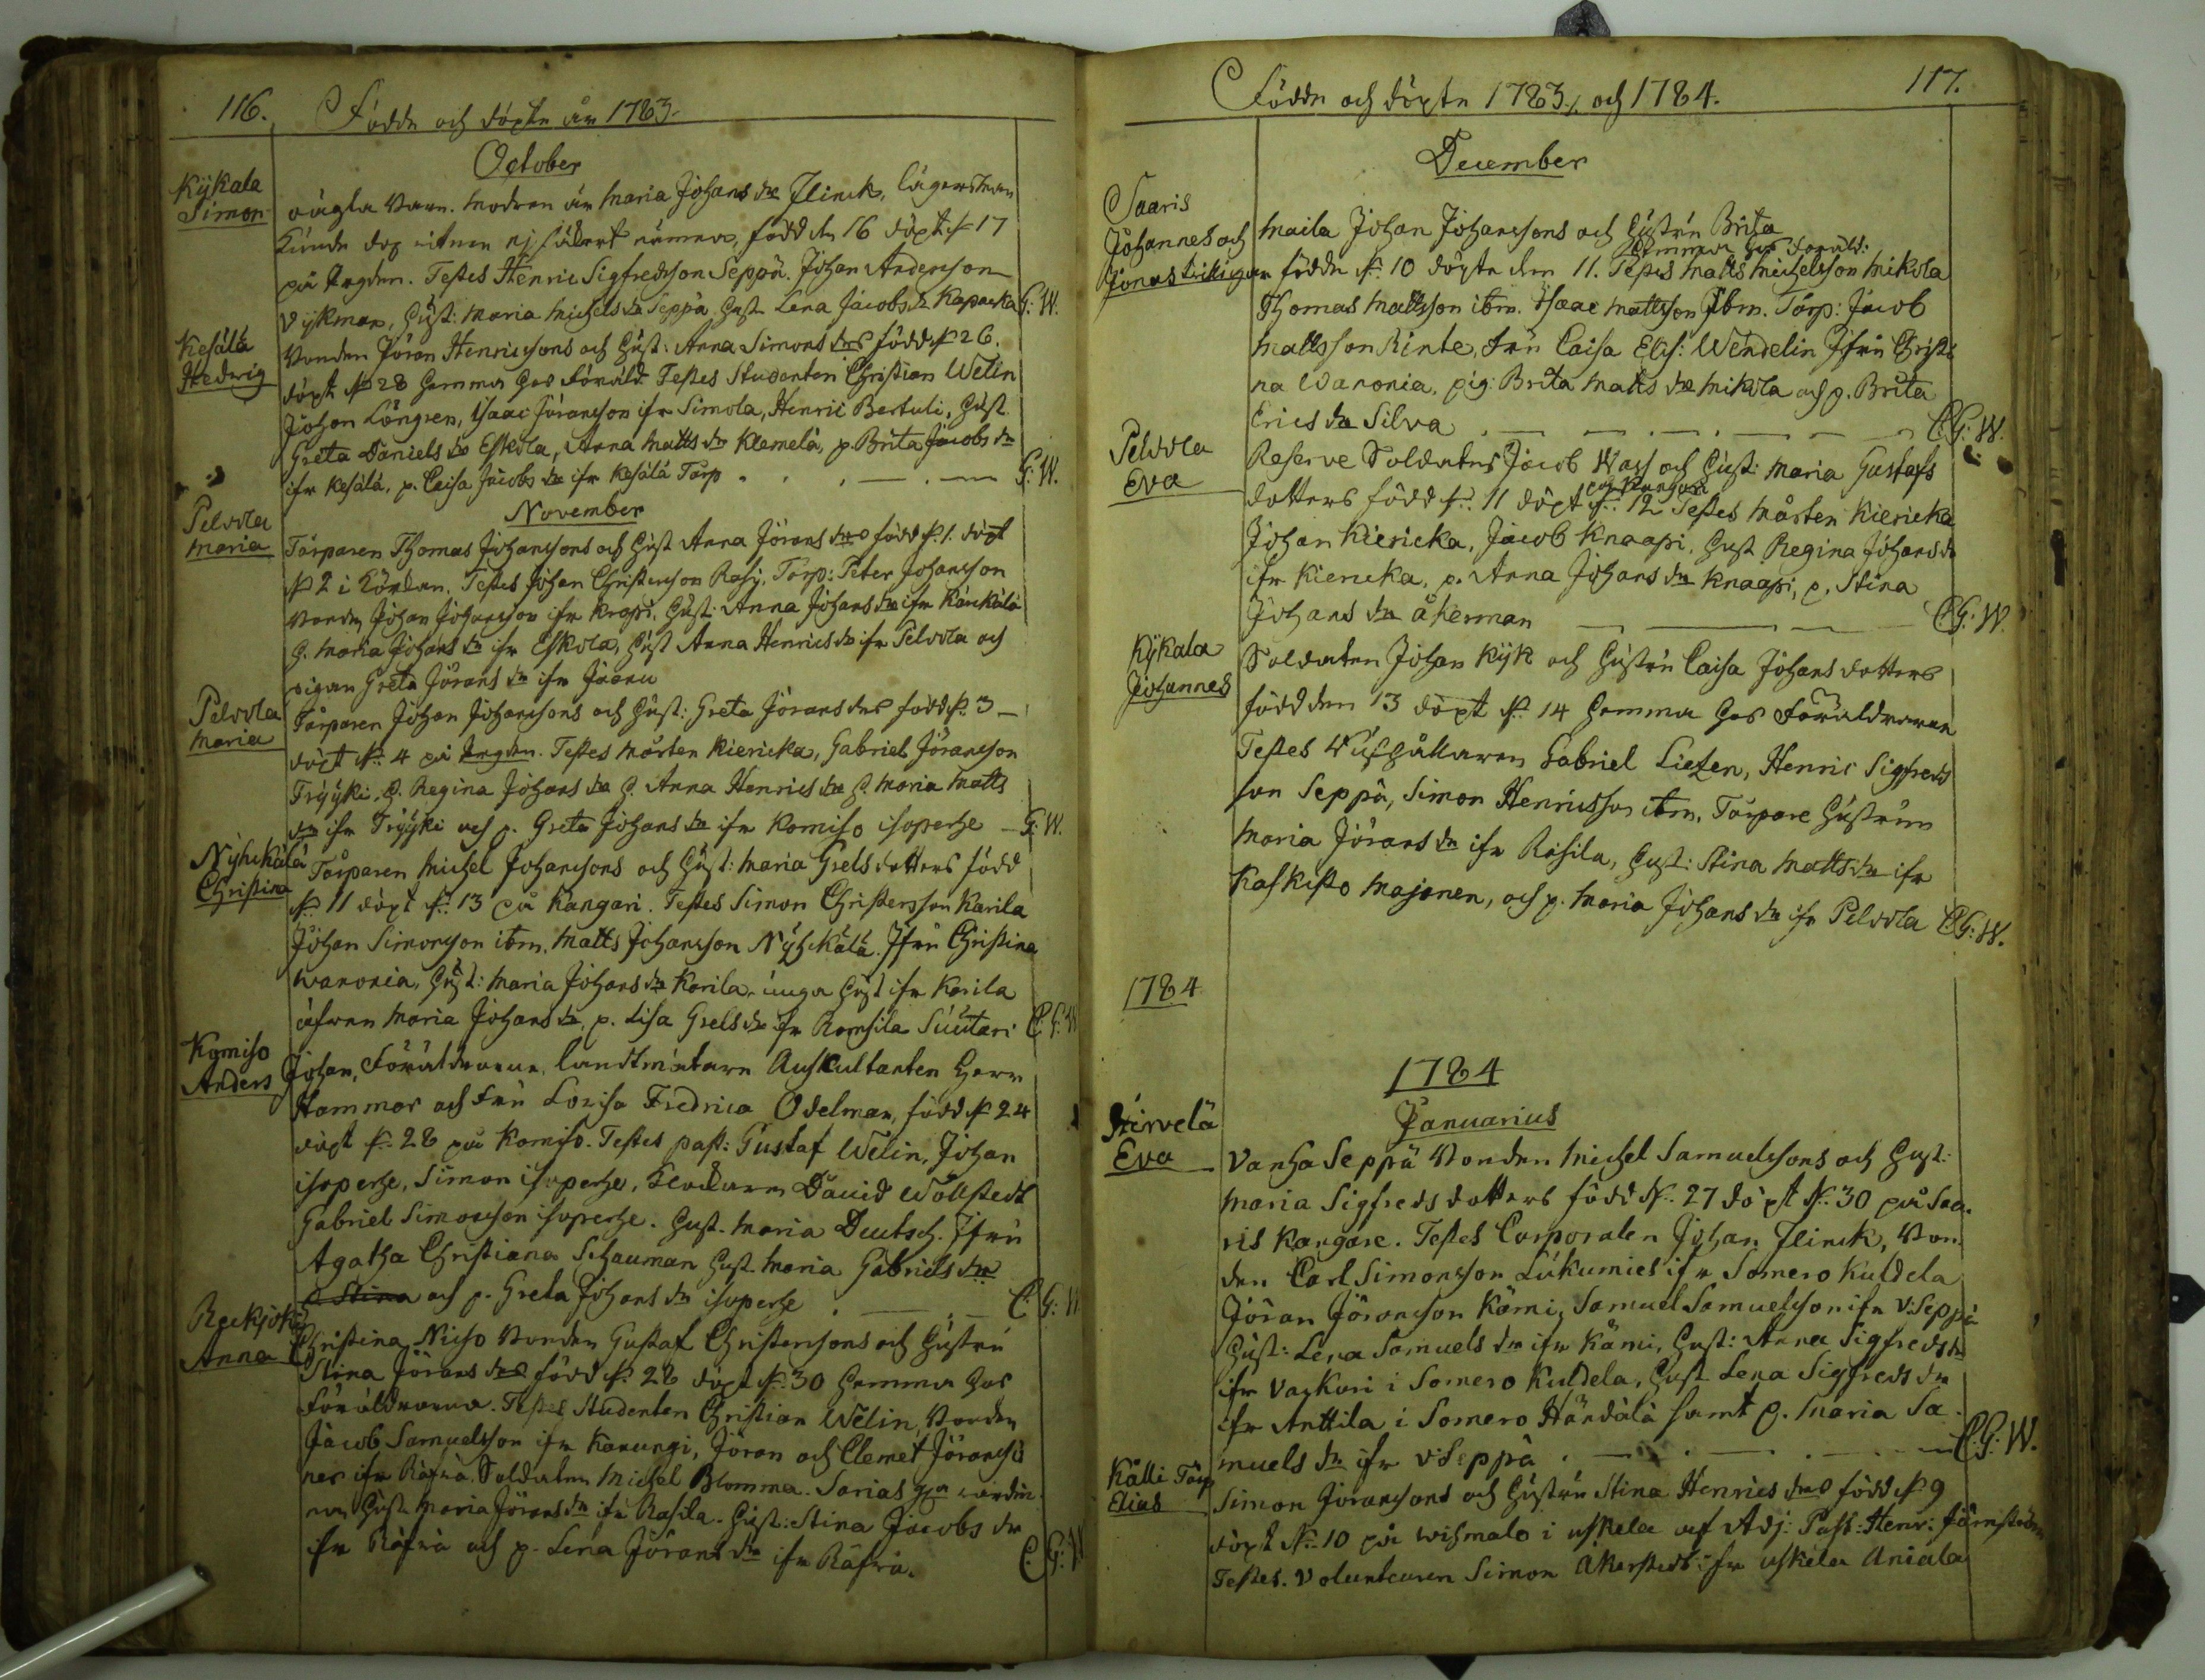 116. Födde och döpte åhr 1783.
October
Kÿkala
Simon
oägta barn. modren är Maria Johans dr Flinck, lägersman
kunde dog ej säkert nämnas, född den 16 döpt d. 17
på Prgden. Testes Henric Sigfredsson Seppä. Johan Andersson
Vykman, Hust: Maria Michels dr Seppä Hust Lena Jacobs dr Kaparka G: W.
Kesälä
Hedvig
Bonden Jöran Henricssons och Hust: Anna Simons drs född d. 26.
döpt d. 28 hemma hos föräld. Testes Studenten Christian Welin
Johan Löngren, Isaac Jöransson ifr Simola, Henric Bertuli, Hust
Greta Daniels dr Eskola, Anna Matts dr Klemelä, p. Brita Jacobs dr
ifr Kesälä, p. Caisa Jacobs dr ifr Kesälä Torp G: W.
November
Pelvola
Maria
Torparen Thomas Johanssons och Hust Anna Jörans drs född d. 1. döpt
d. 2 i Kyrkan. Testes Johan Christersson Rasi, Torp: Peter Johansson
Bonden Johan Johansson ifr Kropi, Hust: Anna Johans dr ifr Känkälä
H. Maria Johans dr ifr Eskola, Hust Anna Henrics dr ifr Pelvola och
pigan Greta Jörans dr ifr Jaanu
Pelvola
Maria
Torparen Johan Johanssons och Hust: Greta Jörans drs född d. 3
döpt d. 4 på Prgden. Testes Mårten Kiericka, Gabriel Jöransson
Fryyki, H. Regina Johans dr H. Anna Henrics dr H. Maria Matts
dr ifr Fryyki och p. Greta Johans dr ifr Komiso isoperhe G: W.
Nyhkälä
Christina
Torparen Michel Johanssons och Hust: Maria Grels dotters född
d. 11 döpt d. 13 på Kangari. Testes Simon Christersson Karila
Johan Simonsson ibm. Matts Johansson Nyhkälä. Jfru Christina
Wanonia, Hust: Maria Johans dr Karila, unga Hust ifr Karila
äfven Maria Johans dr, p. Lisa Grels dr ifr Romsila Suutari C. G: W
Komiso
Anders
Johan, Föräldrarne Landtmätare Auskultanten Herr
Hammar och Fru Lovisa Fredrica Odelman, född d. 24
döpt d. 28 på Komiso. Testes past: Gustaf Welin, Johan
isoperhe, Simon isoperhe, Klockaren David Wållstedt
Gabriel Simonsson isoperhe. Hust. Maria Deutsch. Jfru
Agatha Christiana Schauman Hust. Maria Gabriels dr
p. Stina och p. Greta Johans dr isoperhe C: G: W
Reckjoki
Anna
Christina Niiso Bonden Gustaf Christerssons och Hustru
Stina Jörans drs född d. 28 döpt d. 30 hemma hos
Föräldrarne. Testes Studenten Christian Welin, Bonden
Jacob Samuelsson ifr Kanungi, Jöran och Clemet Jöransso
ner ifr Räfvä. Soldaten Michel Blomma. Sarias
Hust Maria Jörans dr ifr Rasila. Hust: Stina Jacobs dr
ifr Räfvä och p. Lena Jörans dr ifr Räfvä. C: G: W
Födde och döpte 1783, och 1784. 117.
December
Saaris
Johannes och
Jonas tvillingar
Maila Johan Johanssons och Hustru Brita
hemma hos föräld:
födde d. 10 döpte den 11. Testes Matts Michelsson Mikola
Thomas Mattsson ibm. Isaac Mattsson ibm. Torp: Jacob
Mattsson Rinte, Fru Caisa Elis: Wendelin Jfru Christi
na Wanonia, pig: Brita Matts dr Mikola och p. Brita
Erics dr Silva C: G: W.
Pelvola
Eva
Reserve Soldatens Jacob Wass och Hust: Maria Gustafs
på Kangari
dotters född d. 11 döpt d. 12 Testes Mårten Kiericka
Johan Kiericka, Jacob Knaapi, Hust Regina Johans dr
ifr Kiericka, p. Anna Johans dr Knaapi, p. Stina
Johans dr Åkerman C: G: W.
Kÿkala
Johannes
Soldaten Johan Kÿk och Hustru Caisa Johans dotters
född den 13 döpt d. 14 hemma hos Föräldrarne
Testes Kusthållaren Gabriel Lietzen, Henric Sigfreds
son Seppä, Simon Henricsson ibm. Torpare Hustrun
Maria Jörans dr ifr Rasila, Hust: Stina Matts dr ifr
Kaskisto Majanen, och p. Maria Johans dr ifr Pelvola C: G: W.
1784
1784
Januarius
Hirvelä
Eva
Vanha Seppä Bonden Michel Samuelssons och Hust:
Maria Sigfreds dotters född d. 27 döpt d. 30 på Saa-
ris Kangare. Testes Corporalen Johan Flinck, Bon-
den Carl Simonsson Lukumies ifr Somero Kuldela
Jöran Jöransson Kämi, Samuel Samuelsson ifr V: Seppä
Hust: Lena Samuels dr ifr Kämi, Hust: Anna Sigfreds dr
ifr Vackari i Somero Kuldela, Hust Lena Sigfreds dr
ifr Anttila i Somero Händälä samt p. Maria Sa-
muels dr ifr V: Seppä C: G: W.
Källi Torp
Elias
Simon Joranssons och Hustru Stina Henrics drs född d. 9
döpt d. 10 på Wismalo i Uskela af Adj: Past: Henr: Järnström
Testes. Volunteuren Simon Åkerstedt ifr Uskela Aniala